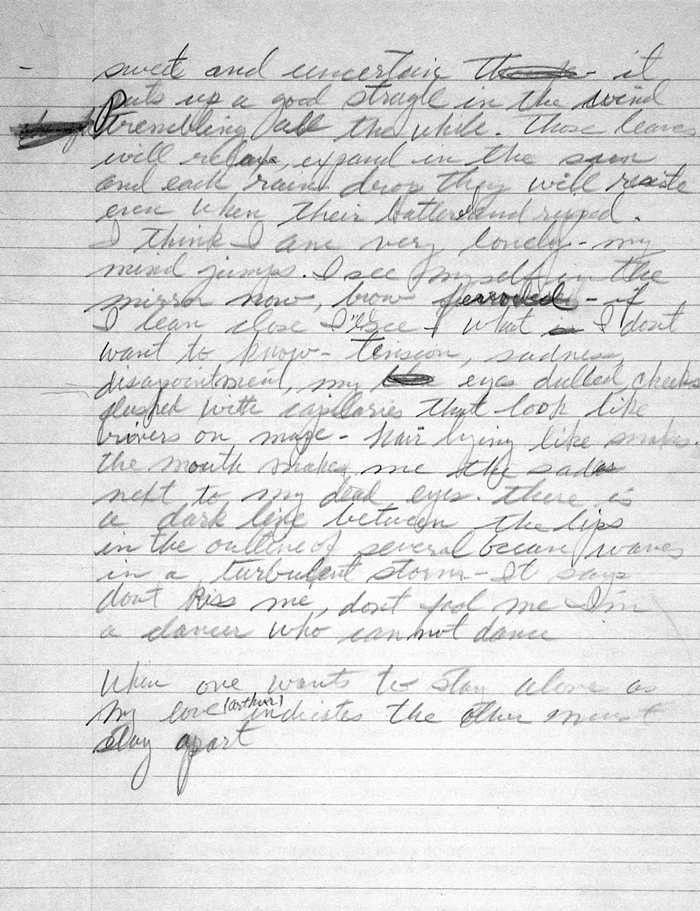 sweet and uncertain it
Puts up a good strugle in the wind
trembling all the while. Those leaves
will relax, expand in the sun
and each rain drop they will resiste
even when their batterd and ripped.
I think I am very lonely - my
mind jumps. I see myself in the
mirror now, brow - if
I lean close I'll see - what I dont
want to know - tension, sadness,
disapointment, my eyes dulled, cheeks
flushed with capilaries that look like
rivers on maps - hair lying like snakes.
the mouth makes me the sadd
next to my dead eyes. there is
a dark line between the lips
in the outline of several waves
in a turbulent storm - It says
dont kiss me, dont fool me I'm
a dancer who cannot dance
When one wants to stay alone as
my love (arthur) indicates the other must
stay apart